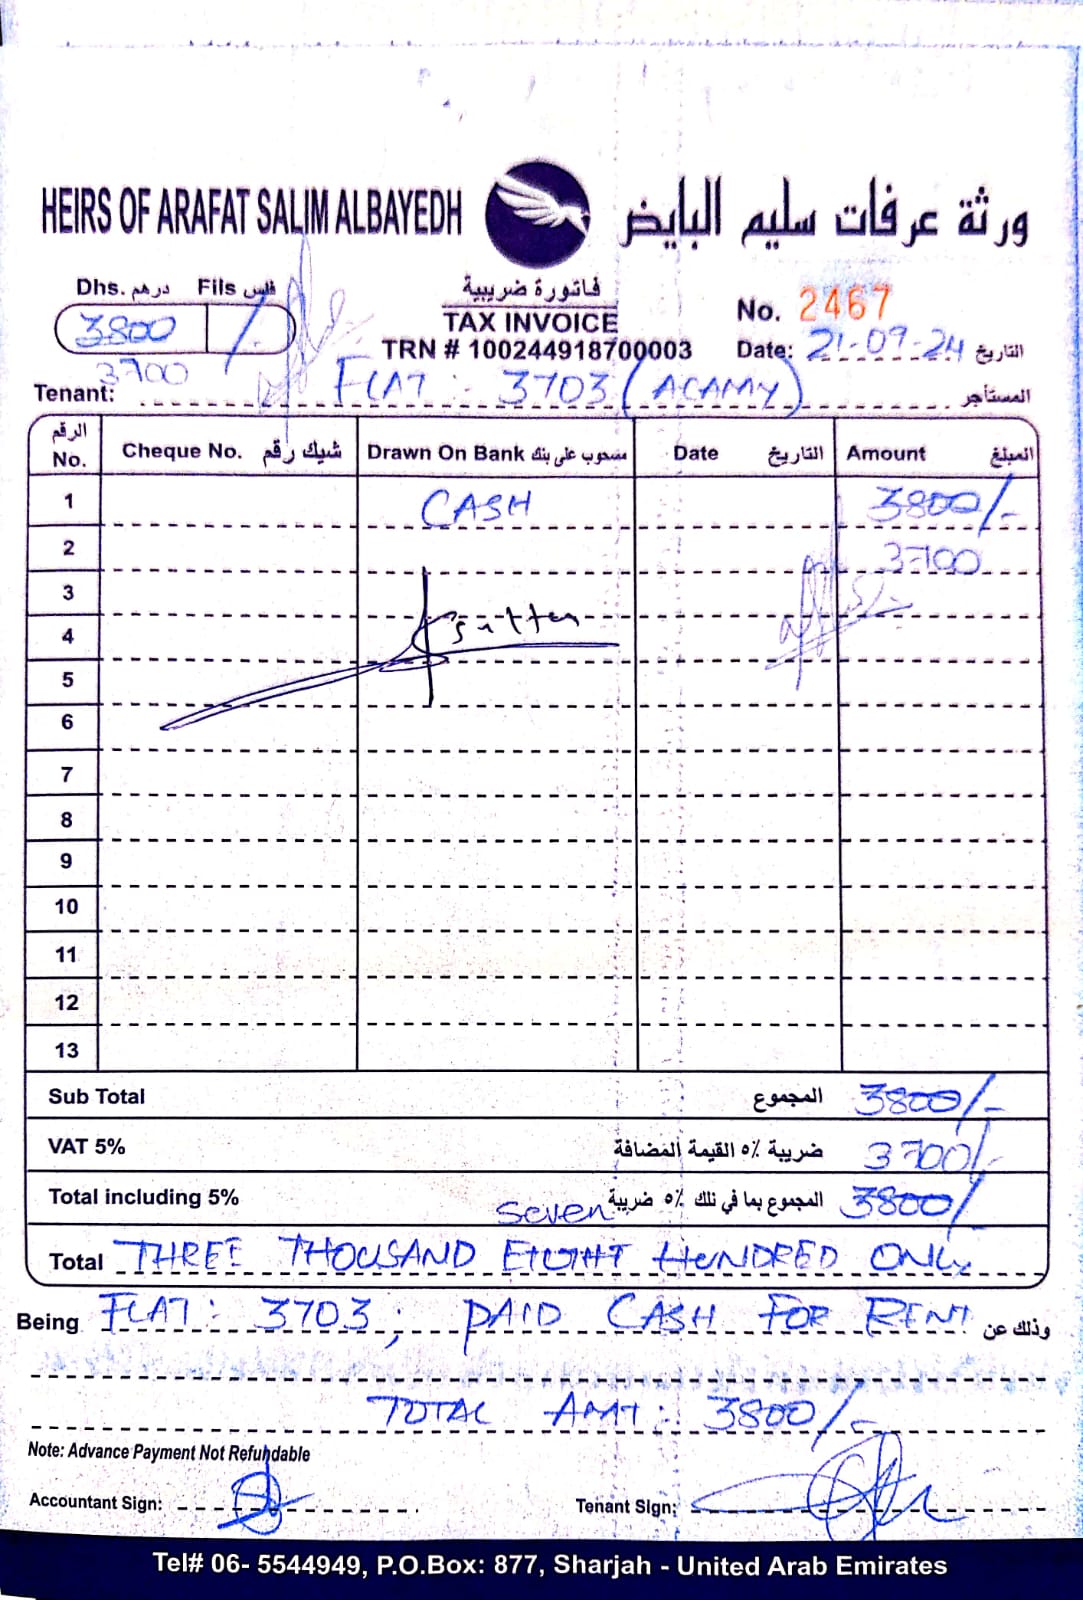 HEIRS OF ARAFAT SALIM ALBAYEDH ورثة عرفات سليم البايض
Dhs. درهم Fils فلس
3800 /-
3700
فاتورة ضريبية
TAX INVOICE
TRN # 100244918700003
No. 2467
Date: 21-09-24 التاريخ
Tenant: FLAT : 3703 (ACAMY) المستأجر
الرقم No. Cheque No. شيك رقم Drawn On Bank مسحوب على بنك Date التاريخ Amount المبلغ
1 CASH 3800/-
2 3700
3
4
5
6
7
8
9
10
11
12
13
Sub Total المجموع 3800/-
VAT 5% ضريبة ٥٪ القيمة المضافة 3700/-
Total including 5% المجموع بما في ذلك ٥٪ ضريبة 3800/-
Seven
Total THREE THOUSAND EIGHT HUNDRED ONLY
Being FLAT: 3703, PAID CASH FOR RENT وذلك عن
TOTAL AMT: 3800/-
Note: Advance Payment Not Refundable
Accountant Sign: Tenant Sign:
Tel# 06- 5544949, P.O.Box: 877, Sharjah - United Arab Emirates